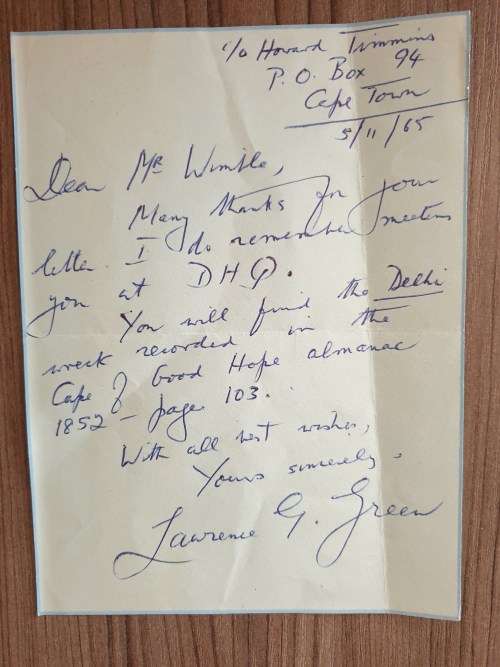 c/o Howard Timmins
P.O. Box 94
Cape Town
5/11/65
Dear Mr Wimble,
Many thanks for your
letter. I do remember meeting
you at DHQ.
You will find the Delhi
wreck recorded in the
Cape of Good Hope almanac
1852 – page 103.
With all best wishes,
Yours sincerely.
Lawrence G. Green